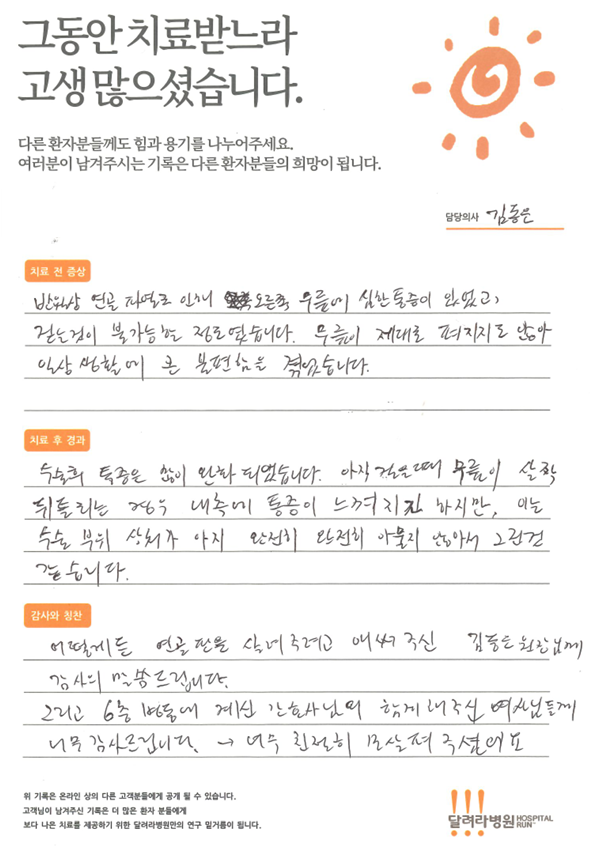 그동안 치료받느라
고생 많으셨습니다.
다른 환자분들께도 힘과 용기를 나누어주세요.
여러분이 남겨주시는 기록은 다른 환자분들의 희망이 됩니다.
담당의사 김동은
치료 전 증상
반월상 연골 파열로 인해 오른쪽 무릎에 심한 통증이 있었고,
걷는것이 불가능할 정도였습니다. 무릎이 제대로 펴지지도 않아
일상 생활에 큰 불편함을 겪었습니다.
치료 후 경과
수술후 통증은 많이 완화 되었습니다. 아직 걸을때 무릎이 살짝
뒤틀리는 경우 내측에 통증이 느껴지긴 하지만, 이는
수술 부위 상처가 아직 완전히 완전히 아물지 않아서 그런것
같습니다.
감사와 칭찬
어떻게든 연골판을 살려주려고 애써주신 김동은원장님께
감사의 말씀드립니다.
그리고 6층 병동에 계신 간호사님과 함께 여사님들께
너무 감사드립니다. → 너무 친절히 보살펴 주셨어요
위 기록은 온라인 상의 다른 고객분들에게 공개 될 수 있습니다.
고객님이 남겨주신 기록은 더 많은 환자 분들에게
보다 나은 치료를 제공하기 위한 달려라병원만의 연구 밑거름이 됩니다.
달려라병원 HOSPITAL RUN